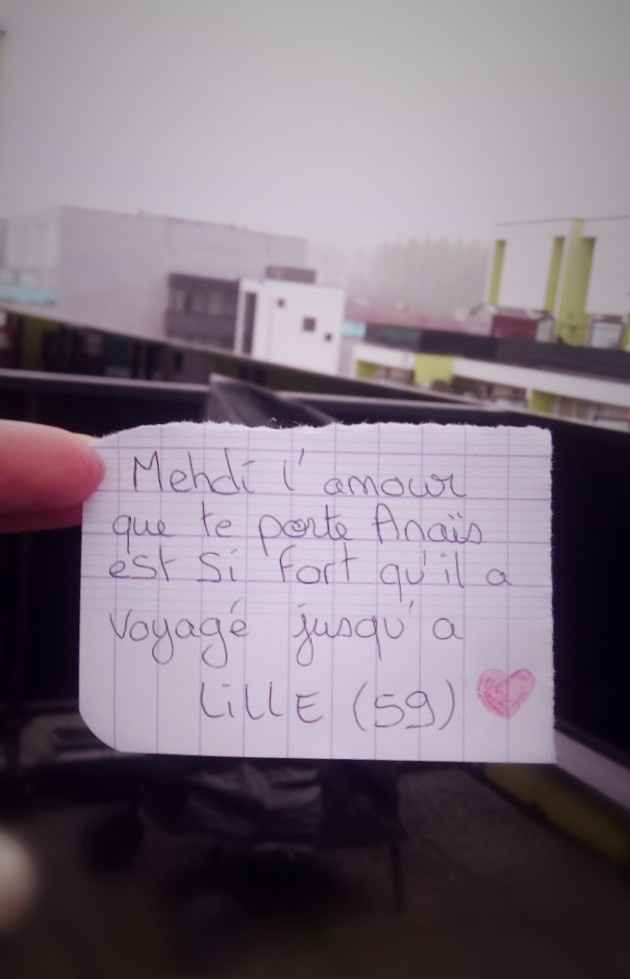 Mehdi l'amour
que te porte Anaïs
est si fort qu'il a
voyagé jusqu'a
LiLLE (59)